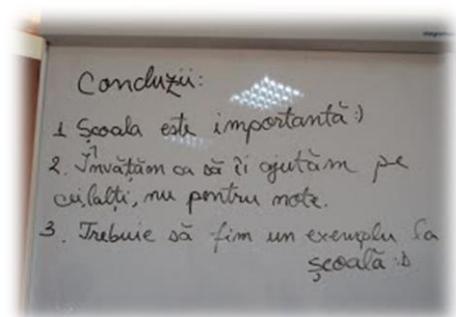 Concluzii:
1 Școala este importantă:)
2. Învățăm ca să îi ajutăm pe
ceilalți, nu pentru note.
3. Trebuie să fim un exemplu la
școală :D